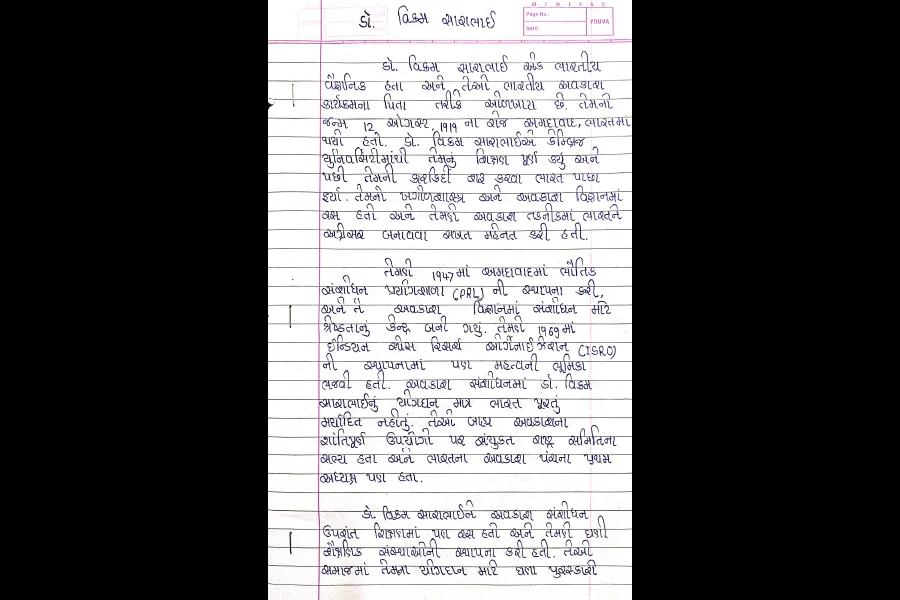 M T W T F S S
Page No.:
Date:
YOUVA
ડો. વિક્રમ સારાભાઈ
ડો. વિક્રમ સારાભાઈ એક ભારતીય
વૈજ્ઞાનિક હતા અને તેઓ ભારતીય અવકાશ
કાર્યક્રમના પિતા તરીકે ઓળખાય છે. તેમનો
જન્મ 12 ઓગસ્ટ, 1919 ના રોજ અમદાવાદ, ભારતમાં
થયો હતો. ડો. વિક્રમ સારાભાઈએ કેમ્બ્રિજ
યુનિવર્સિટીમાંથી તેમનું શિક્ષણ પૂર્ણ કર્યું અને
પછી તેમની કારકિર્દી શરૂ કરવા ભારત પાછા
ફર્યા. તેમનો ખગોળશાસ્ત્ર અને અવકાશ વિજ્ઞાનમાં
રસ હતો અને તેમણે અવકાશ તકનીકમાં ભારતને
અગ્રેસર બનાવવા સખત મહેનત કરી હતી.
તેમણે 1947માં અમદાવાદમાં ભૌતિક
સંશોધન પ્રયોગશાળા (PRL) ની સ્થાપના કરી,
અને તે અવકાશ વિજ્ઞાનમાં સંશોધન માટે
શ્રેષ્ઠતાનું કેન્દ્ર બની ગયું. તેમણે 1969માં
ઈન્ડિયન સ્પેસ રિસર્ચ ઓર્ગેનાઈઝેશન (ISRO)
ની સ્થાપનામાં પણ મહત્વની ભૂમિકા
ભજવી હતી. અવકાશ સંશોધનમાં ડો. વિક્રમ
સારાભાઈનું યોગદાન માત્ર ભારત પૂરતું
મર્યાદિત નહોતું. તેઓ બાહ્ય અવકાશના
શાંતિપૂર્ણ ઉપયોગો પર સંયુકત રાષ્ટ્ર સમિતિના
સભ્ય હતા અને ભારતના અવકાશ પંચના પ્રથમ
અધ્યક્ષ પણ હતા.
ડો. વિક્રમ સારાભાઈને અવકાશ સંશોધન
ઉપરાંત શિક્ષણમાં પણ રસ હતો અને તેમણે ઘણી
શૈક્ષણિક સંસ્થાઓની સ્થાપના કરી હતી. તેઓ
સમાજમાં તેમના યોગદાન માટે ઘણા પુરસ્કારો